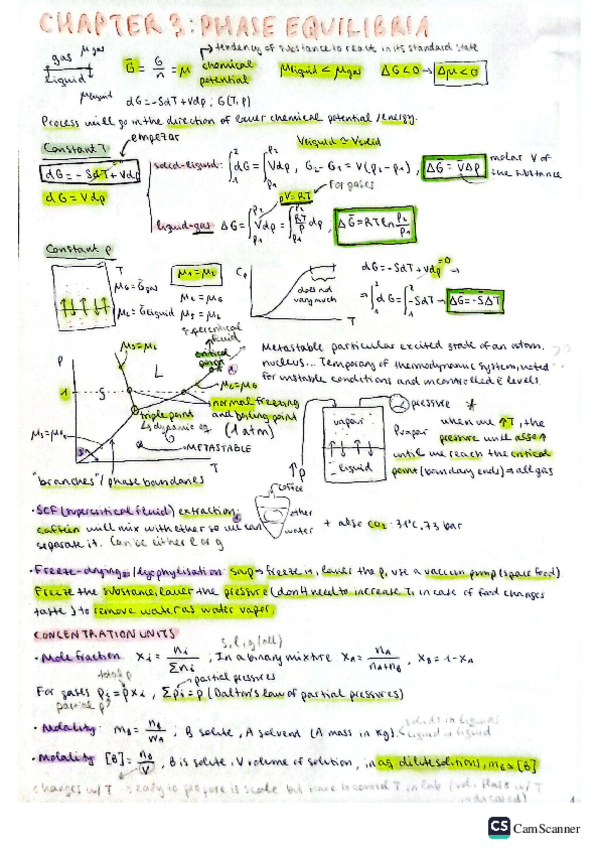 CHAPTER 3: PHASE EQUILIBRIA
→ tendency of substance to react in its standard state
gas μgas
liquid
μliquid
Ḡ = G/n = μ chemical potential
μliquid < μgas ΔG<0 → Δμ<0
dG=-SdT+Vdp ; G(T,p)
Process will go in the direction of lower chemical potential /energy.
Constant T → empezar
Vliquid ≃ Vsolid
dG = -SdT + Vdp
dG = Vdp
solid-liquid: ∫₁² dG = ∫p₁^p₂ Vdp , G₂-G₁ = V(p₂-p₁) , ΔḠ = V̄Δp molar V of the substance
pV=RT → for gases
liquid-gas ΔG = ∫p₁^p₂ Vdp = ∫p₁^p₂ RT/p dp , ΔḠ=RTln p₂/p₁
Constant p
T
μG = Ḡgas
μL = Ḡliquid
μ₁=μ₂
μL = μG
μS = μL
Cp
does not vary much
T
dG=-SdT+Vdp =0
⇒ ∫₁² dG = ∫₁² -SdT → ΔG=-SΔT
supercritical fluid
critical point
P
μS=μL
L
S
1
μL=μG
normal freezing and boiling point (1 atm)
triple point
↳ dynamic eq
METASTABLE
T
"branches"/phase boundaries
Metastable particular excited state of an atom, nucleus... Temporary of thermodynamic system, noted for unstable conditions and incontrolled E levels.
vapor
liquid
pressure
↑P
Pvapor when we ↑T, the pressure will also ↑ until we reach the critical point (boundary ends) → all gas
· SCF (supercritical fluid) extraction:
caffein will mix with ether so we can separate it. Can be either l or g
coffee
ether
water
+ also CO₂ · 31°C, 73 bar
· Freeze-drying /lyophylisation: sup → freeze it, lower the p, use a vaccum pump (space food)
Freeze the substance, lower the pressure (don't need to increase T, in case of food changes
taste) to remove water as water vapor.
CONCENTRATION UNITS
s, l, g (all)
· Mole fraction Xi = ni/Σni ; In a binary mixture XA = nA/nA+nB , XB = 1-XA
total p
partial pressures
For gases pi = pXi , Σpi = p (Dalton's law of partial pressures)
partial p
· Molality: mB = nB/WA ; B solute, A solvent (A mass in Kg)
solids in liquids
liquid in liquid
· Molality [B] = nB/V , B is solute, V volume of solution, in aq. dilute solutions, mB ≈ [B]
changes w/ T
easy to prepare is scale but have to control T in lab
CS CamScanner